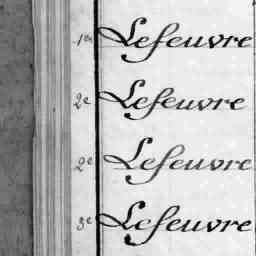 1er Lefeuvre
2e Lefeuvre
2e Lefeuvre
3e Lefeuvre